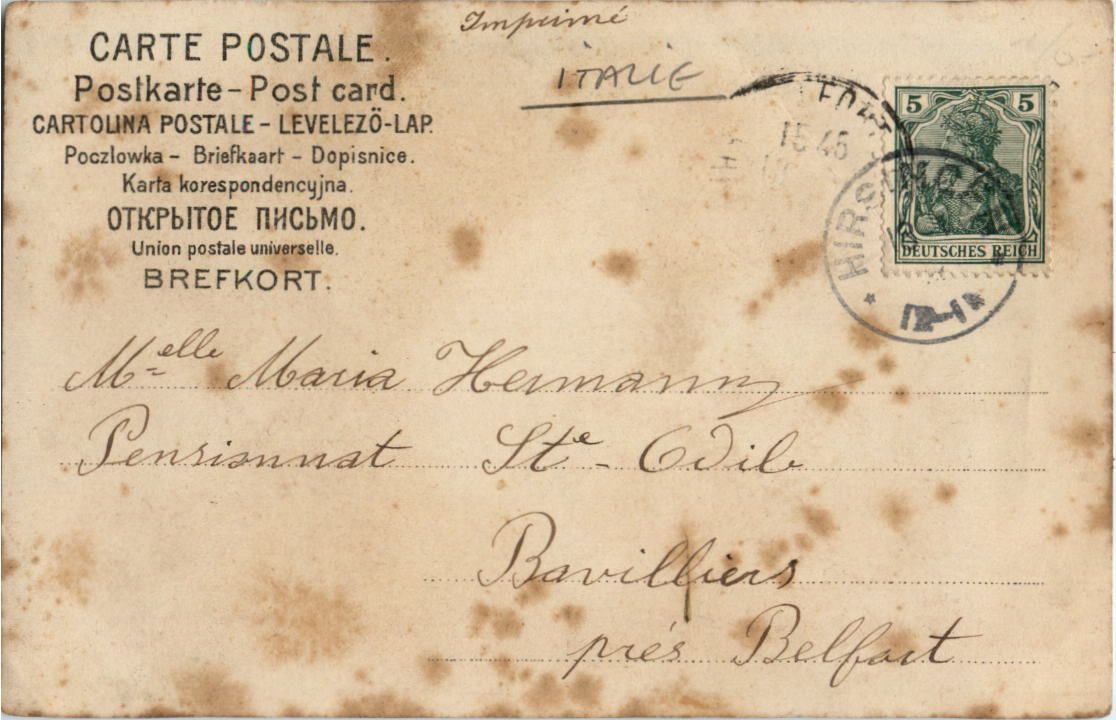 Imprimé
CARTE POSTALE.
Postkarte – Post card.
CARTOLINA POSTALE – LEVELEZÖ-LAP.
Poczlowka – Briefkaart – Dopisnice.
Karta korespondencyjna.
ОТКРЫТОЕ ПИСЬМО.
Union postale universelle.
BREFKORT.
ITALIE
15 45
5 5
DEUTSCHES REICH
Melle Maria Hermann
Pensionnat Ste - Odile
Bavilliers
prés Belfort